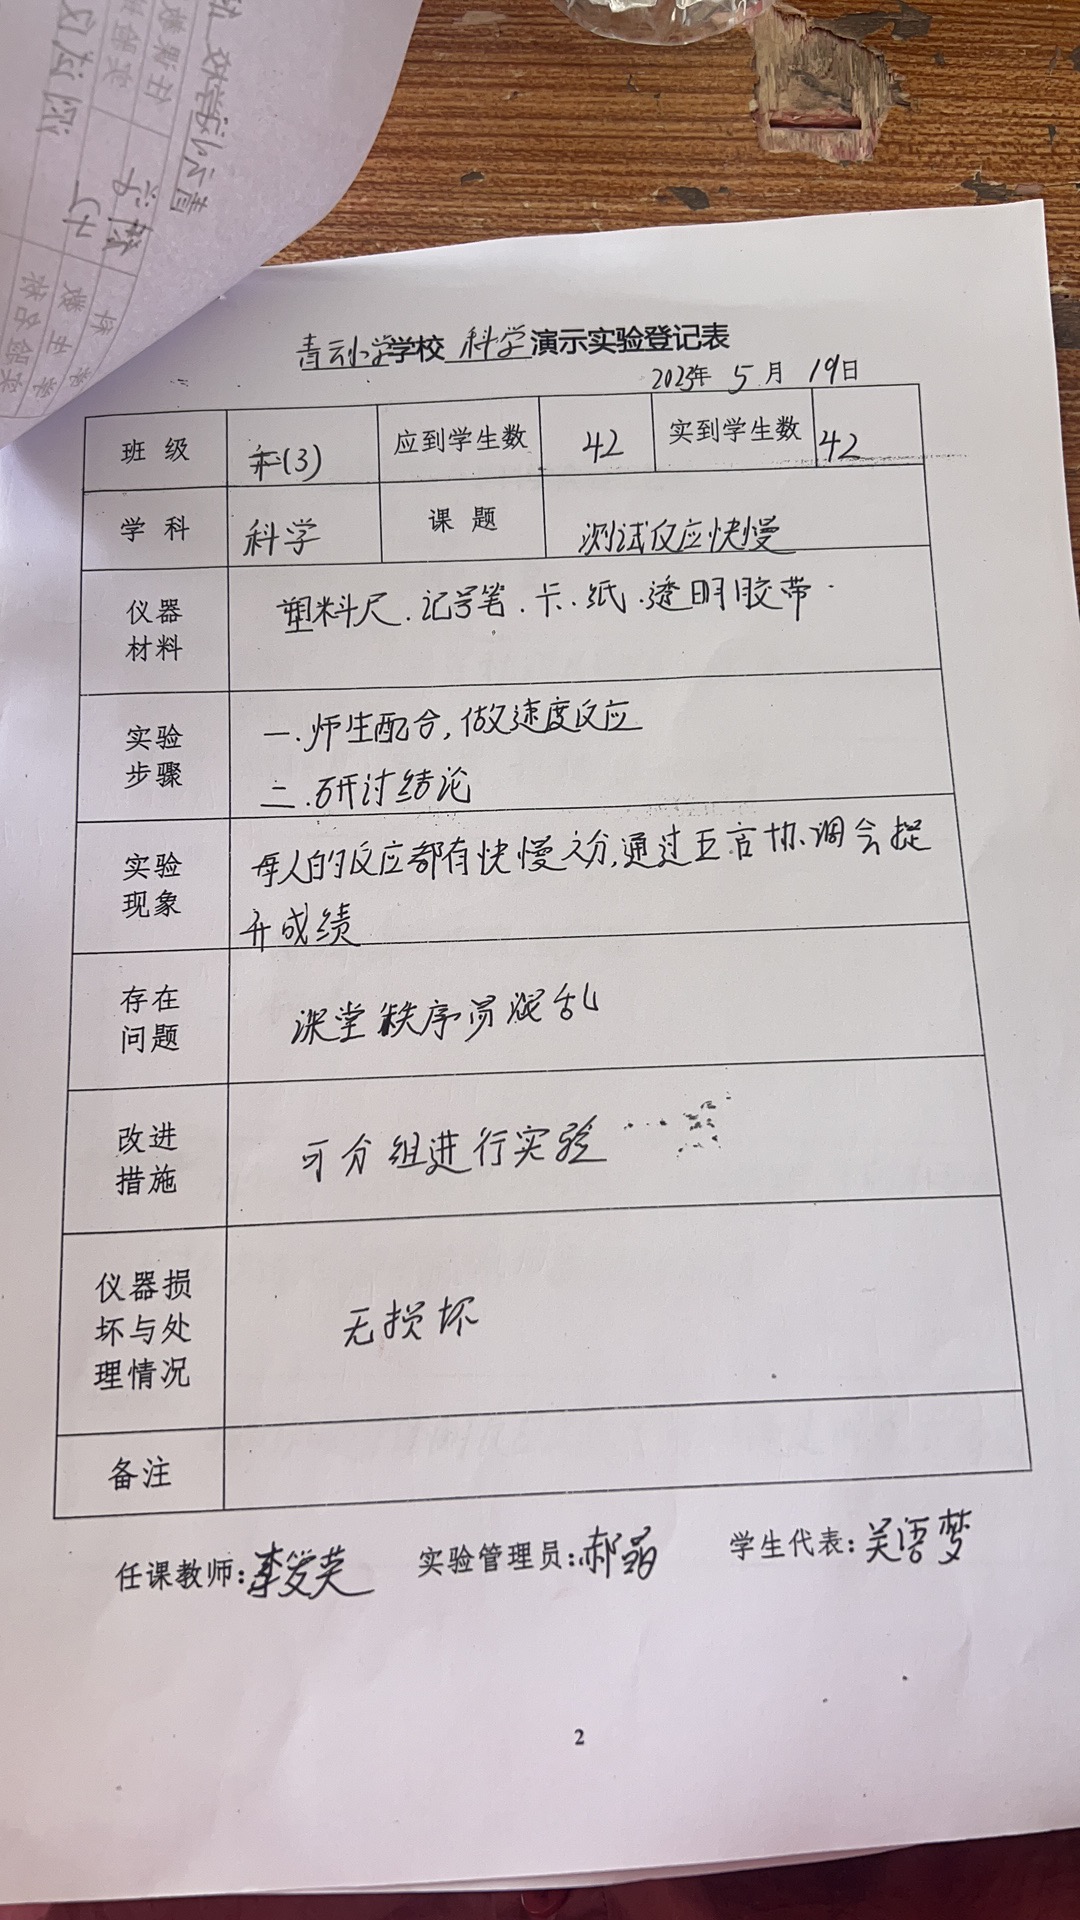 青云小学学校 科学 演示实验登记表
2023年 5 月 19日
班 级 (3) 应到学生数 42 实到学生数 42
学 科 科学 课 题 测试反应快慢
仪器 塑料尺.记号笔.卡.纸.透明胶带.
材料
实验 一.师生配合,做速度反应
步骤 二.研讨结论
实验 每人的反应都有快慢之分,通过互言协.调会提
现象 升成绩
存在 课堂秩序易混乱
问题
改进 可分组进行实验
措施
仪器损
坏与处 无损坏
理情况
备注
任课教师: 李爱芙 实验管理员: 郝 学生代表: 吴语梦
2